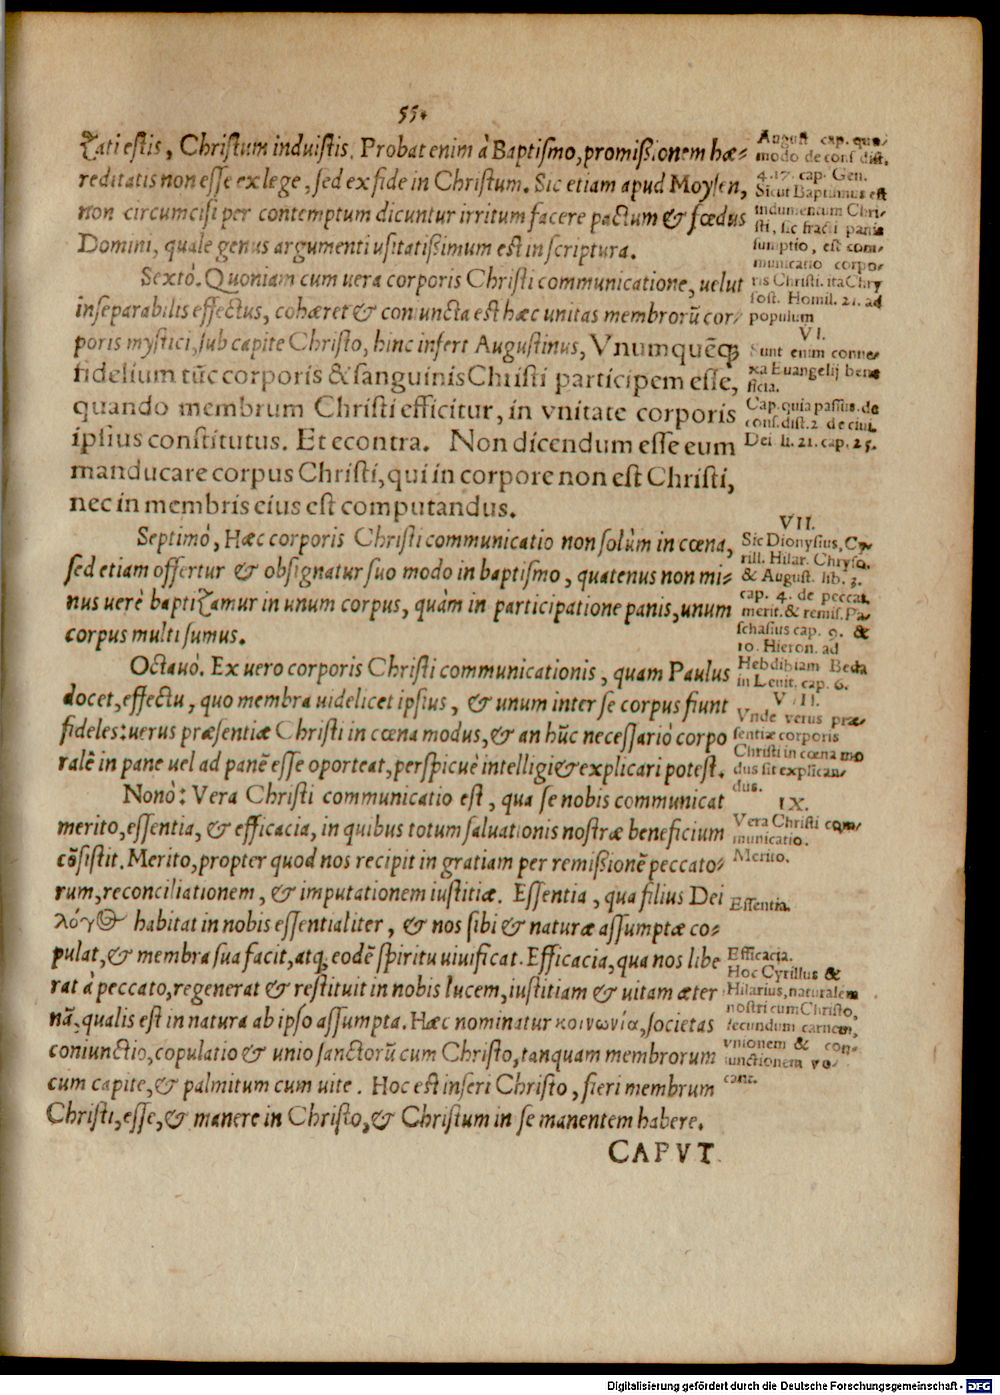 55.
zati estis, Christum induistis. Probat enim à Baptismo, promißionem hæ-
reditatis non esse ex lege, sed ex fide in Christum. Sic etiam apud Moysen,
non circumcisi per contemptum dicuntur irritum facere pactum & fœdus
Domini, quale genus argumenti usitatißimum est in scriptura.
Sextò. Quoniam cum uera corporis Christi communicatione, uelut
inseparabilis effectus, cohæret & coniuncta est hæc unitas membrorũ cor-
poris mystici, sub capite Christo, hinc infert Augustinus, Vnumquẽq;
fidelium tũc corporis & sanguinis Christi participem esse,
quando membrum Christi efficitur, in vnitate corporis
ipsius constitutus. Et econtra. Non dicendum esse eum
manducare corpus Christi, qui in corpore non est Christi,
nec in membris eius est computandus.
Septimò, Hæc corporis Christi communicatio non solùm in cœna,
sed etiam offertur & obsignatur suo modo in baptismo, quatenus non mi-
nus uerè baptizamur in unum corpus, quàm in participatione panis, unum
corpus multi sumus.
Octauò. Ex uero corporis Christi communicationis, quam Paulus
docet, effectu, quo membra uidelicet ipsius, & unum inter se corpus fiunt
fideles: uerus præsentiæ Christi in cœna modus, & an hũc necessariò corpo
ralẽ in pane uel ad panẽ esse oporteat, perspicuè intelligi & explicari potest.
Nonò: Vera Christi communicatio est, qua se nobis communicat
merito, essentia, & efficacia, in quibus totum saluationis nostræ beneficium
cõsistit. Merito, propter quod nos recipit in gratiam per remißionẽ peccato-
rum, reconciliationem, & imputationem iustitiæ. Essentia, qua filius Dei
λόγος habitat in nobis essentialiter, & nos sibi & naturæ assumptæ co-
pulat, & membra sua facit, atq; eodẽ spiritu uiuificat. Efficacia, qua nos libe
rat à peccato, regenerat & restituit in nobis lucem, iustitiam & uitam æter
nã, qualis est in natura ab ipso assumpta. Hæc nominatur κοινωνία, societas
coniunctio, copulatio & unio sanctorũ cum Christo, tanquam membrorum
cum capite, & palmitum cum uite. Hoc est inseri Christo, fieri membrum
Christi, esse, & manere in Christo, & Christum in se manentem habere.
CAPVT.
August cap. quo-
modo de cons dist.
4. 17. cap. Gen.
Sicut Baptismus est
indumentum Chri-
sti, sic fracti panis
sumptio, est com-
municatio corpo-
ris Christi. ita Chry
sost. Homil. 21. ad
populum
VI.
Sunt enim conne-
xa Euangelij bene
ficia.
Cap. quia passus. de
cons. dist. 2 de ciui.
Dei li. 21. cap. 25.
VII.
Sic Dionysius, Cy-
rill. Hilar. Chryso.
& August. lib. 3.
cap. 4. de peccat.
merit. & remis. Pa-
schasius cap. 9. &
10. Hieron. ad
Hebdibiam Beda
in Leuit. cap. 6.
Vnde verus præ-
sentiæ corporis
Christi in cœna mo
dus sit explican-
dus.
IX.
Vera Christi com-
municatio.
Merito.
Essentia.
Efficacia.
Hoc Cyrillus &
Hilarius, naturalem
nostri cum Christo,
secundum carnem,
vnionem & con-
iunctionem vo-
cant.
Digitalisierung gefördert durch die Deutsche Forschungsgemeinschaft - DFG